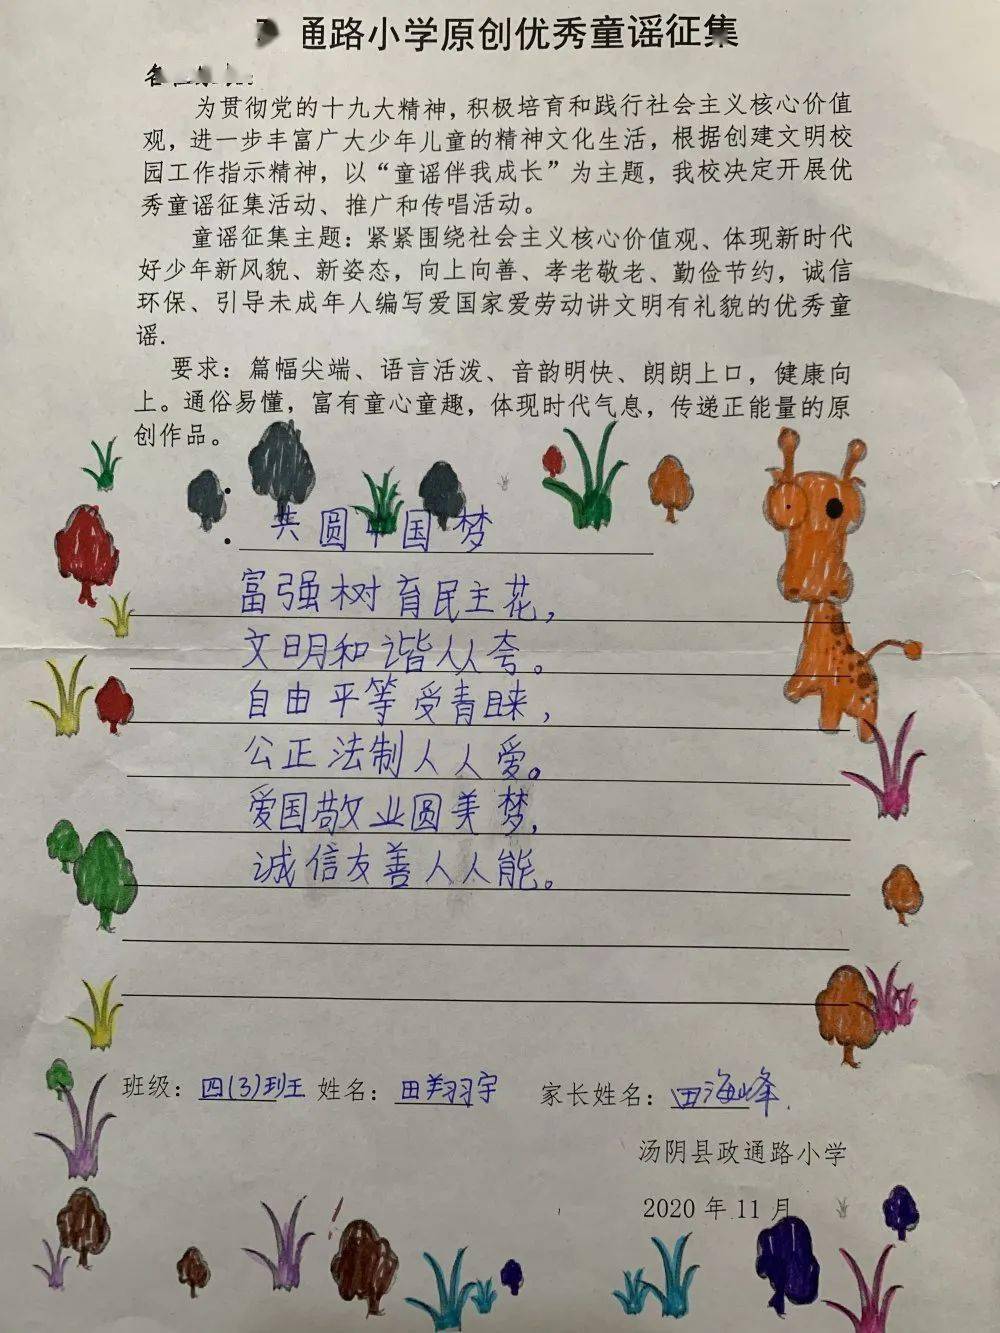 通路小学原创优秀童谣征集
为贯彻党的十九大精神，积极培育和践行社会主义核心价值
观，进一步丰富广大少年儿童的精神文化生活，根据创建文明校
园工作指示精神，以“童谣伴我成长”为主题，我校决定开展优
秀童谣征集活动、推广和传唱活动。
童谣征集主题：紧紧围绕社会主义核心价值观、体现新时代
好少年新风貌、新姿态，向上向善、孝老敬老、勤俭节约，诚信
环保、引导未成年人编写爱国家爱劳动讲文明有礼貌的优秀童
谣.
要求：篇幅尖端、语言活泼、音韵明快、朗朗上口，健康向
上。通俗易懂，富有童心童趣，体现时代气息，传递正能量的原
创作品。
共圆中国梦
富强树育民主花，
文明和谐人人夸。
自由平等受青睐，
公正法制人人爱。
爱国敬业圆美梦，
诚信友善人人能。
班级：四(3)班 姓名：田翔宇 家长姓名：田海峰.
汤阴县政通路小学
2020年11月